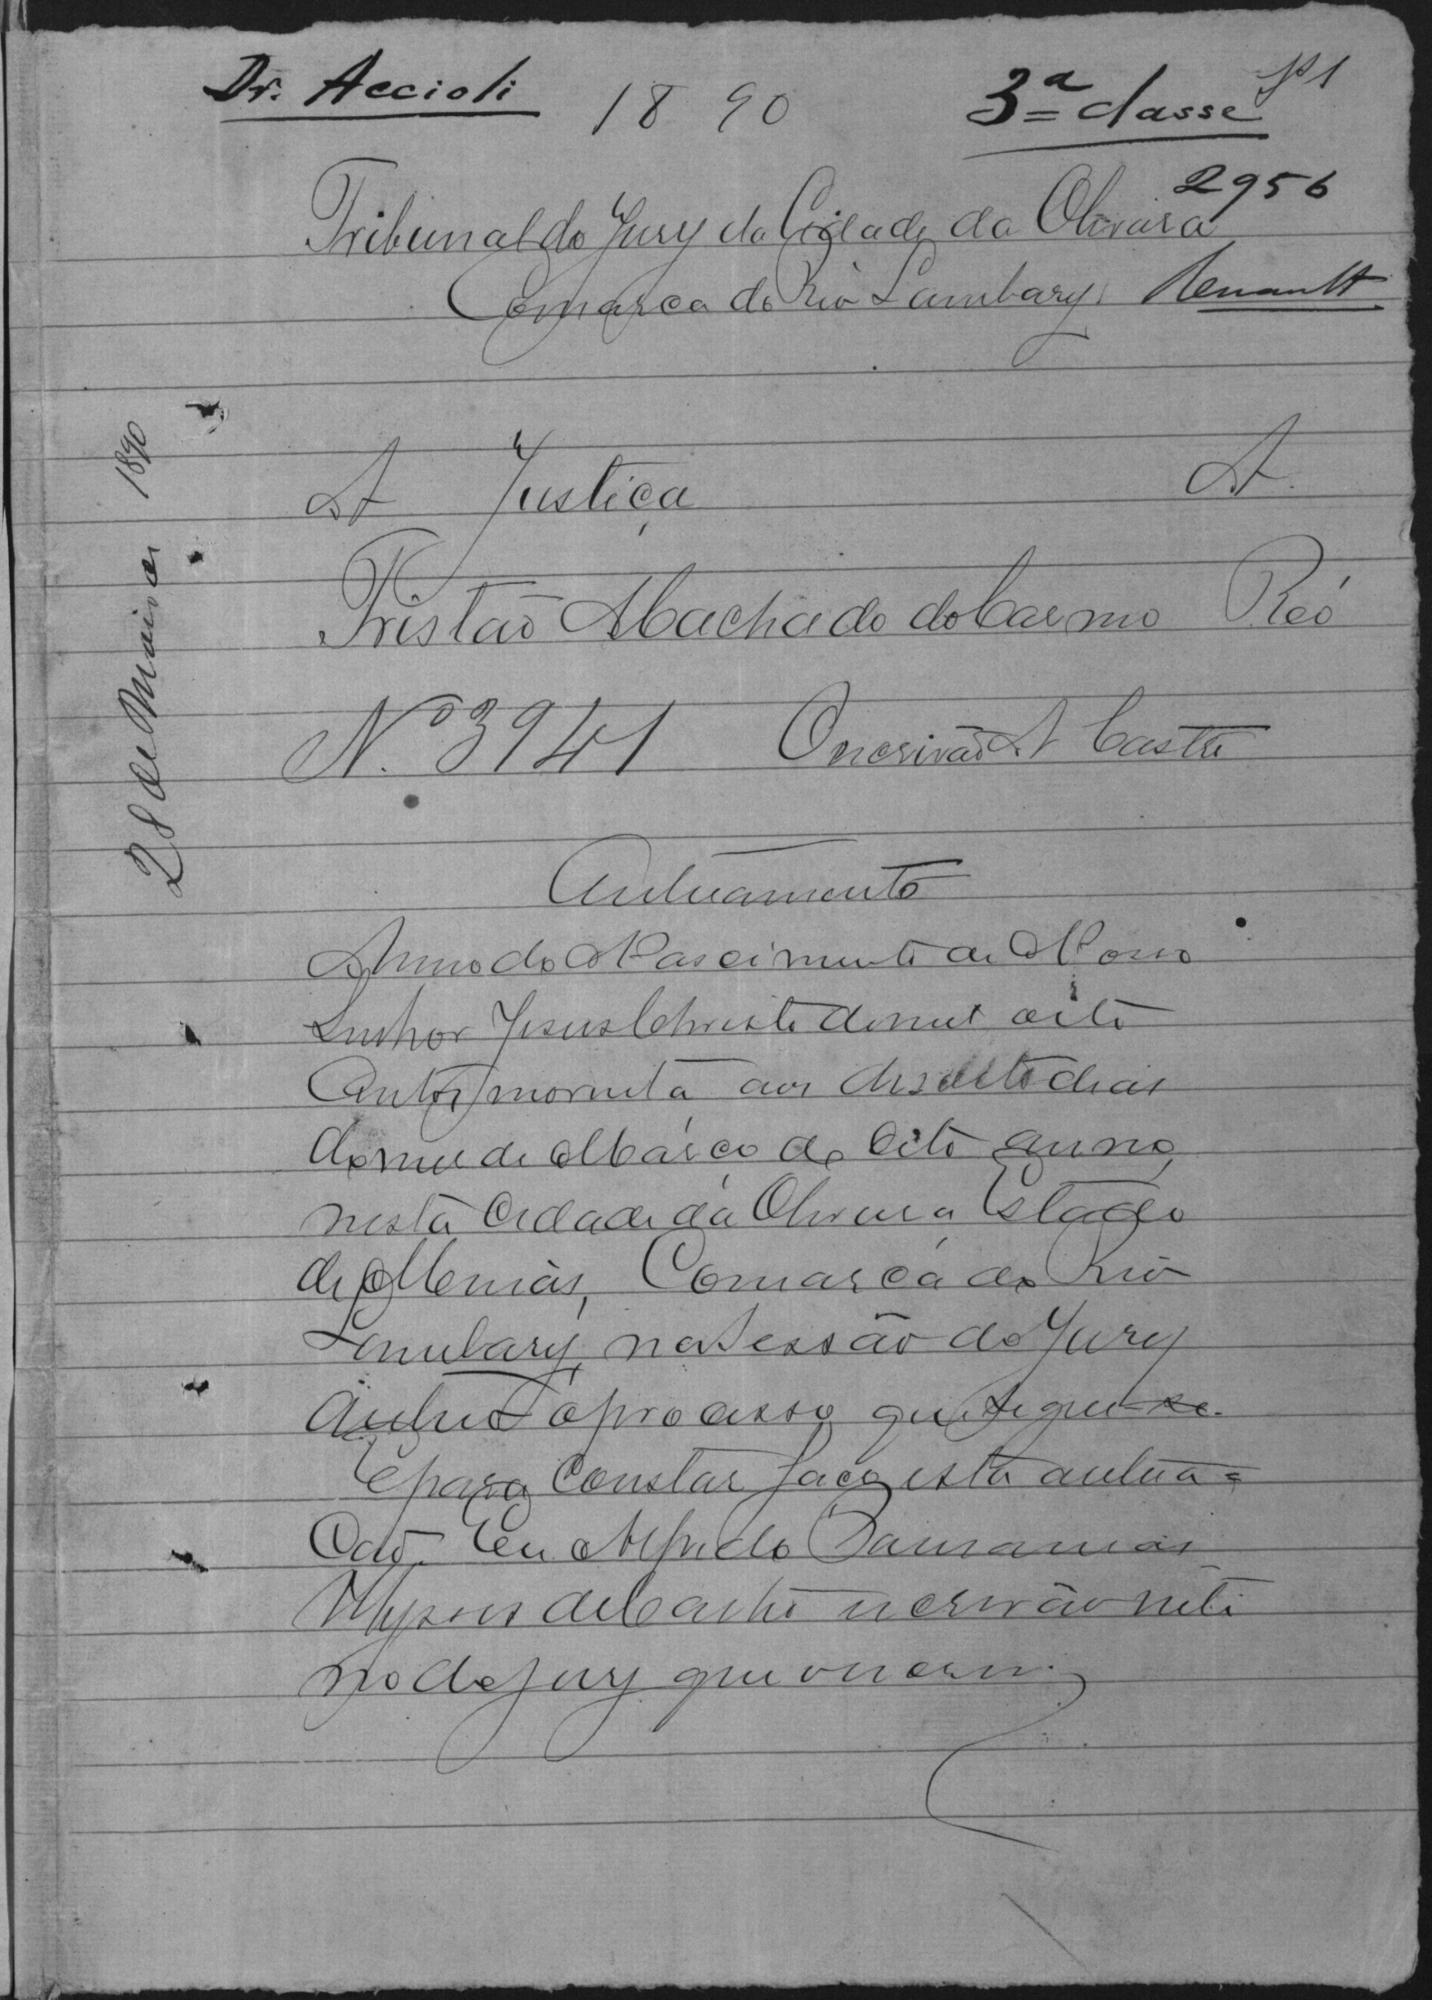 Dr. Accioli 1890 3ª classe fl 1
2956
Tribunal do Jury da Cidade da Oliveira
Comarca do Rio Lambary. Renault
28 de Maio de 1890
A Justiça A.
Tristão Machado do Carmo Réo
Nº 3941 O escrivão A Castro
Autuamento
Anno do Nascimento de Nosso
Senhor Jesus Christo de mil oito
centos e noventa aos dezoito dias
do mez de Março do dito anno,
nesta Cidade da Oliveira Estado
de Minas, Comarca do Rio
Lambary, na Sessão do Jury
autuo o processo que segue-se.
E para constar faço esta autua=
ção. Eu Alfredo
Ulysses de Castro escrivão inte
rino do jury que o escrevi.